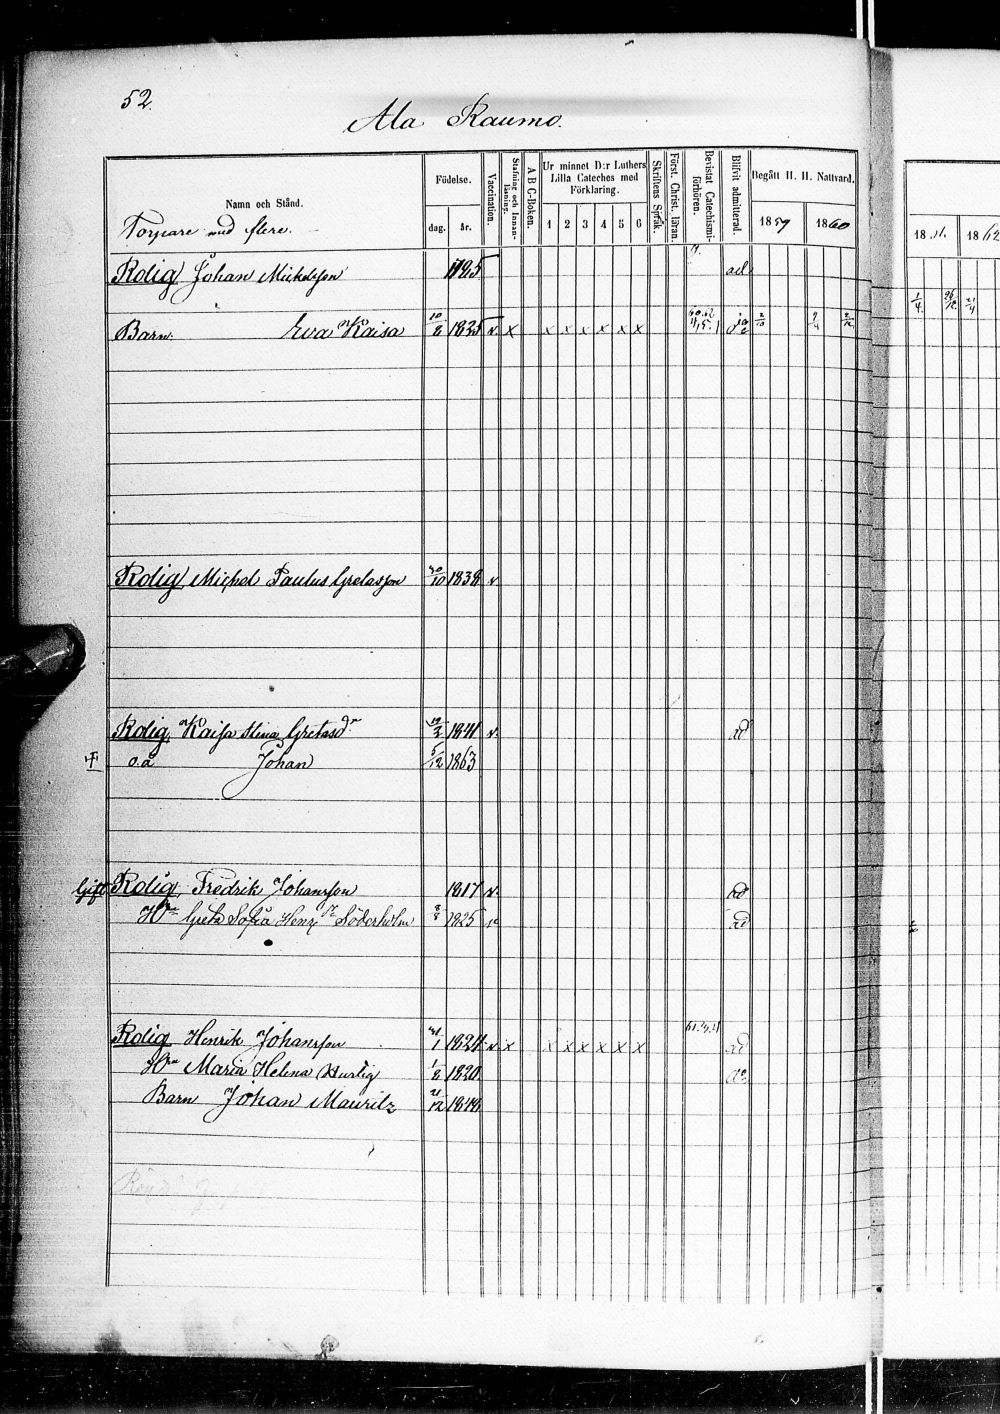 52.
Ala Raumo.
Namn och Stånd.
Födelse.
dag. år.
Vaccination.
Stafning och Innan-läsning.
A B C-Boken.
Ur minnet D:r Luthers Lilla Cateches med Förklaring.
1 2 3 4 5 6
Skriftens Språk.
Först. Christ. läran.
Bevistat Catechismi-förhören.
Blifvit admitterad.
Begått H. H. Nattvard.
1859 1860
18 61. 1862
Torpare med flere.
Rolig Johan Mickelsson 1795 ad
Barn. Eva Kaisa 10/8 1825 v x x x x x x x 2/10
Rolig Michel Paulus Gretasson 30/10 1838 v
Rolig Kaisa Stina Gretasdr 19/2 1841 v.
o.ä Johan 5/12 1863
Gift Rolig Fredrik Johansson 1817 v. ad
Hu Greta Sofia Henr. Söderholm 8/8 1825 ad
Rolig Henrik Johansson 31/1 1824 v x x x x x x x ad
Hu Maria Helena Hurtig 1/8 1820
Barn Johan Mauritz 21/12 1848